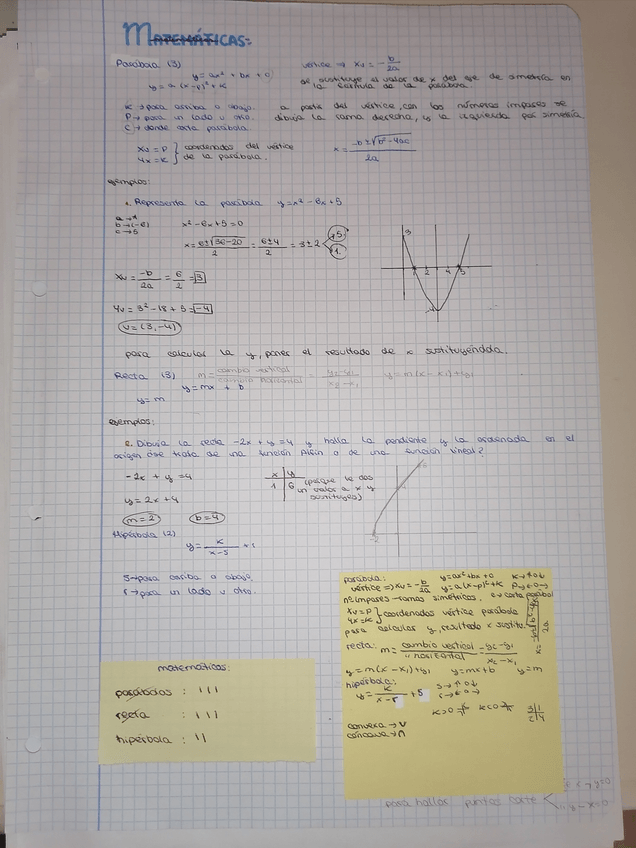 MATEMÁTICAS:
Parábola (3)
y = ax² + bx + c
y = a (x-p)² + k
vértice ⇒ Xv = -b/2a
se sustituye el valor de x del eje de simetría en
la fórmula de la parábola.
K → para arriba o abajo.
P → para un lado u otro.
C → donde corta parábola.
a partir del vértice, con los números impares se
dibuja la rama derecha, y la izquierda por simetría
Xv = P
Yv = K } coordenadas del vértice
de la parábola.
x = -b ± √b² - 4ac / 2a
ejemplos:
1. Representa la parábola y = x² - 6x + 5
a → 1
b → (-6)
c → 5
x² - 6x + 5 = 0
x = 6 ± √36 - 20 / 2 = 6 ± 4 / 2 = 3 ± 2 < 5
1
Xv = -b/2a = 6/2 = 3
Yv = 3² - 18 + 5 = -4
V = (3, -4)
para calcular la y, poner el resultado de x sustituyéndola.
Recta (3) m = cambio vertical / cambio horizontal = y2 - y1 / x2 - x1 y = m(x - x1) + y1
y = mx + b
y = m
ejemplos:
2. Dibuja la recta -2x + y = 4 y halla la pendiente y la ordenada en el
origen ¿se trata de una función afín o de una función lineal?
-2x + y = 4
x | y
1 | 6 (porque le das
un valor a x y
sustituyes)
y = 2x + 4
m = 2 b = 4
-2
Hipérbola (2)
y = K / x-s + r
s → para arriba o abajo.
r → para un lado u otro.
matemáticas:
parábolas : III
recta : III
hipérbola : II
parábola: y = ax² + bx + c
vértice ⇒ Xv = -b/2a y = a(x-p)² + k
nºimpares → ramas simétricas. c → corta parábol
Xv = P
Yv = K } coordenadas vértice parábola
para calcular y, resultado x sustitu.
recta: m = cambio vertical / " horizontal = y2 - y1 / x2 - x1
y = m(x - x1) + y1 y = mx + b y = m
hipérbola:
y = K / x - r + s
K > 0 K < 0
convexa → ∪
cóncava → ∩
para hallar puntos corte